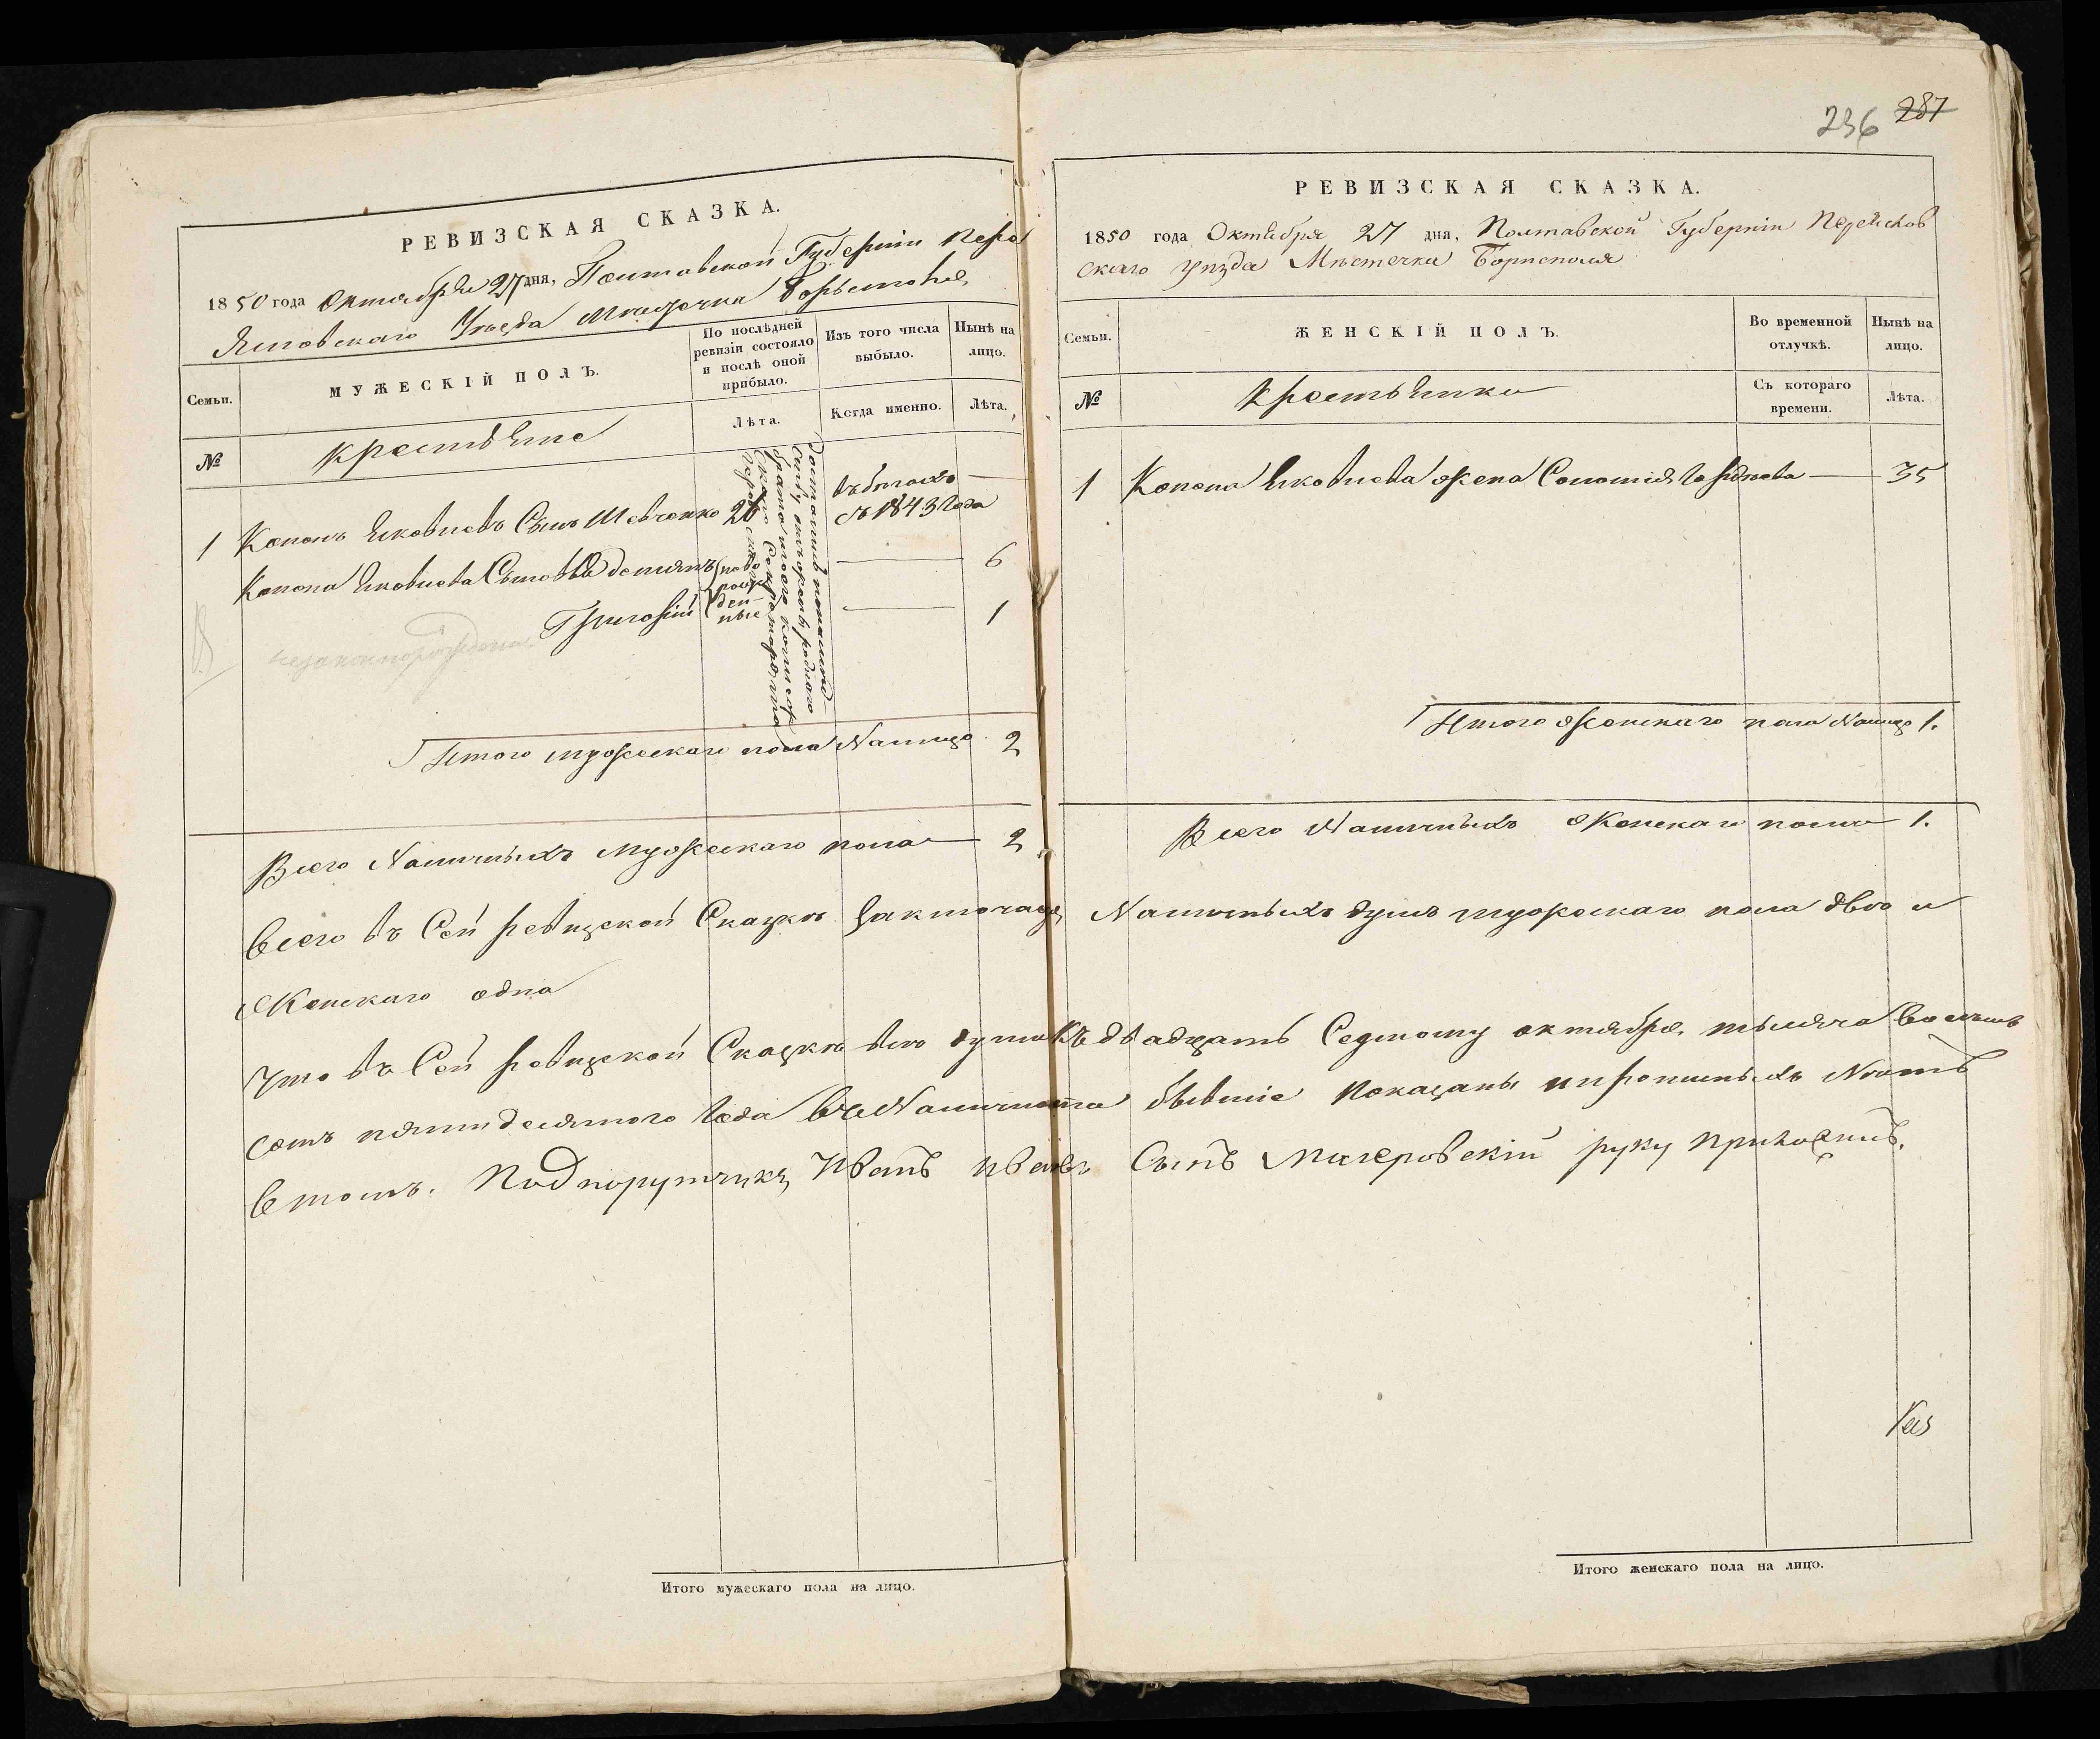 РЕВИЗСКАЯ СКАЗКА.
1850 года Октября 27 дня, Полтавской Губерніи Пере
яславскаго Уѣзда Мѣстечка Борисполя
Семьи.
МУЖЕСКІЙ ПОЛЪ.
По послѣдней
ревизіи состояло
и послѣ оной
прибыло.
Изъ того числа
выбыло.
Нынѣ на
лицо.
№
крестьяне
Лѣта.
Когда именно.
Лѣта.
1 Кононъ Яковлевъ Сынъ Шевченко 26
въ бѣгахъ —
съ 1843 Года
Конона Яковлева Сыновья Демянъ ново — 6
Григорій рож — 1
ден
ные
незаконнорожденн
Итого мужескаго пола Налицо 2
Всего Наличныхъ мужескаго пола — 2
Всего въ Сей ревизской Сказкѣ Заключается
Женскаго одна
Что въ Сей ревизской Сказкѣ всѣ души
сотъ пятидесятого Года въ Наличности
в томъ. Подпорутчикъ Иванъ Ивановъ
236 287
РЕВИЗСКАЯ СКАЗКА.
1850 года Октября 27 дня, Полтавской Губерніи Переяслов
скаго уѣзда Мѣстечка Борисполя
Семьи.
ЖЕНСКІЙ ПОЛЪ.
Во временной
отлучкѣ.
Нынѣ на
лицо.
№
крестьянки
Съ котораго
времени.
Лѣта.
1 Конона Яковлева жена Соломія — 35
Итого женскаго пола Налицо 1.
Всего Наличныхъ Женскаго пола — 1.
Наличныхъ душъ мужескаго пола двѣ и
къ двадцать Седмому октября, тысяча восемь
бывшіе показаны и прописныхъ Нѣтъ
Сынъ Магеровскій руку приложилъ.
Итого мужескаго пола на лицо.
Итого женскаго пола на лицо.